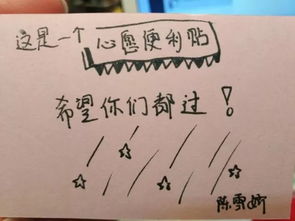 这是一个心愿便利贴
希望你们都过!
陈雪婷